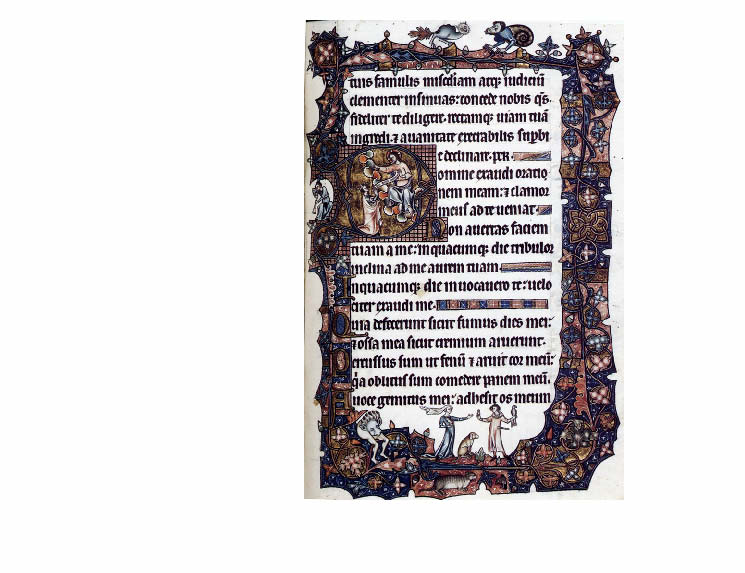 tuis famulis misc̄diam atq; iudiciū
clementer insinuas: concede nobis q̄s.
fideliter te diligere. rectamq; uiam tuā
ingredi. ⁊ a uanitate execrabilis sup̄bi
e declinare. per.
Domine exaudi oratio
nem meam: ⁊ clamor
meus ad te ueniat.
Non auertas faciem
tuam a me: in quacumq; die tribulor
inclina ad me aurem tuam.
In quacumq; die inuocauero te: uelo
citer exaudi me.
Quia defecerunt sicut fumus dies mei:
⁊ ossa mea sicut cremium aruerunt.
Percussus sum ut fenū ⁊ aruit cor meū:
q̄a oblitus sum comedere panem meū.
A uoce gemitus mei: adhesit os meum